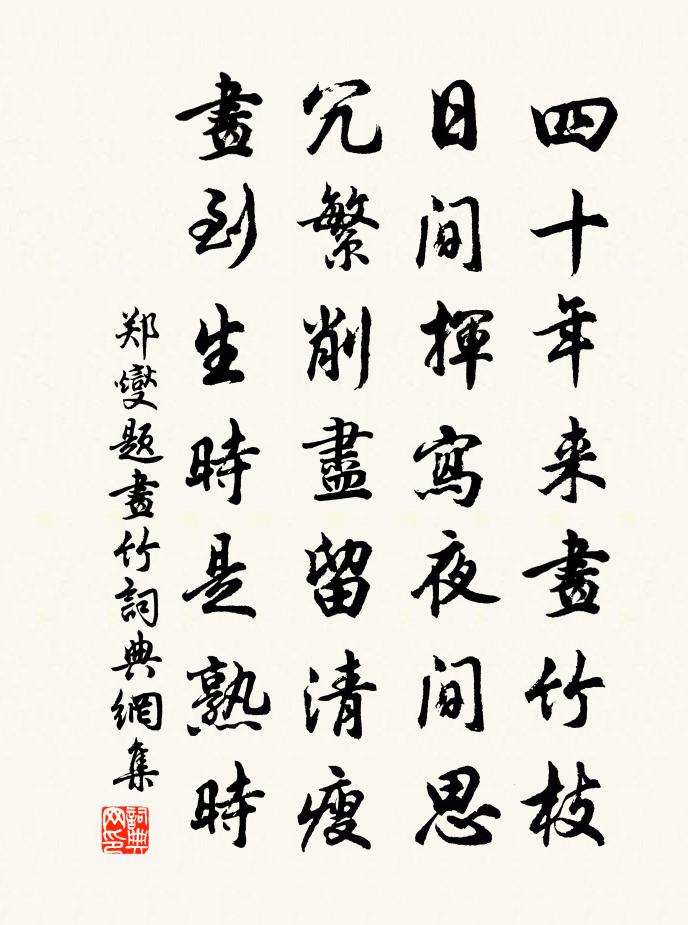 四十年来畫竹枝
日間揮寫夜間思
冗繁削盡留清瘦
畫到生時是熟時
郑燮题畫竹詞典網集
詞典网印